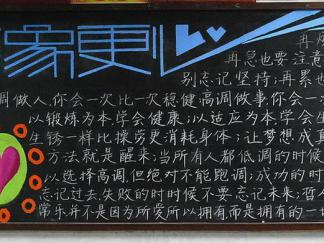 象更心
再烦
再急也要注意
别忘记坚持;再累也
调做人,你会一次比一次稳健高调做事,你会一
以锻炼为本,学会健康;以适应为本,学会生
生锈一样比操劳更消耗身体;让梦想成真
方法就是醒来;当所有人都低调的时候
以选择高调,但绝对不能跑调;成功的时
忘记过去,失败的时时候不要忘记未来;哲人
常乐并不是因为所爱所以拥有,而是拥有的一切